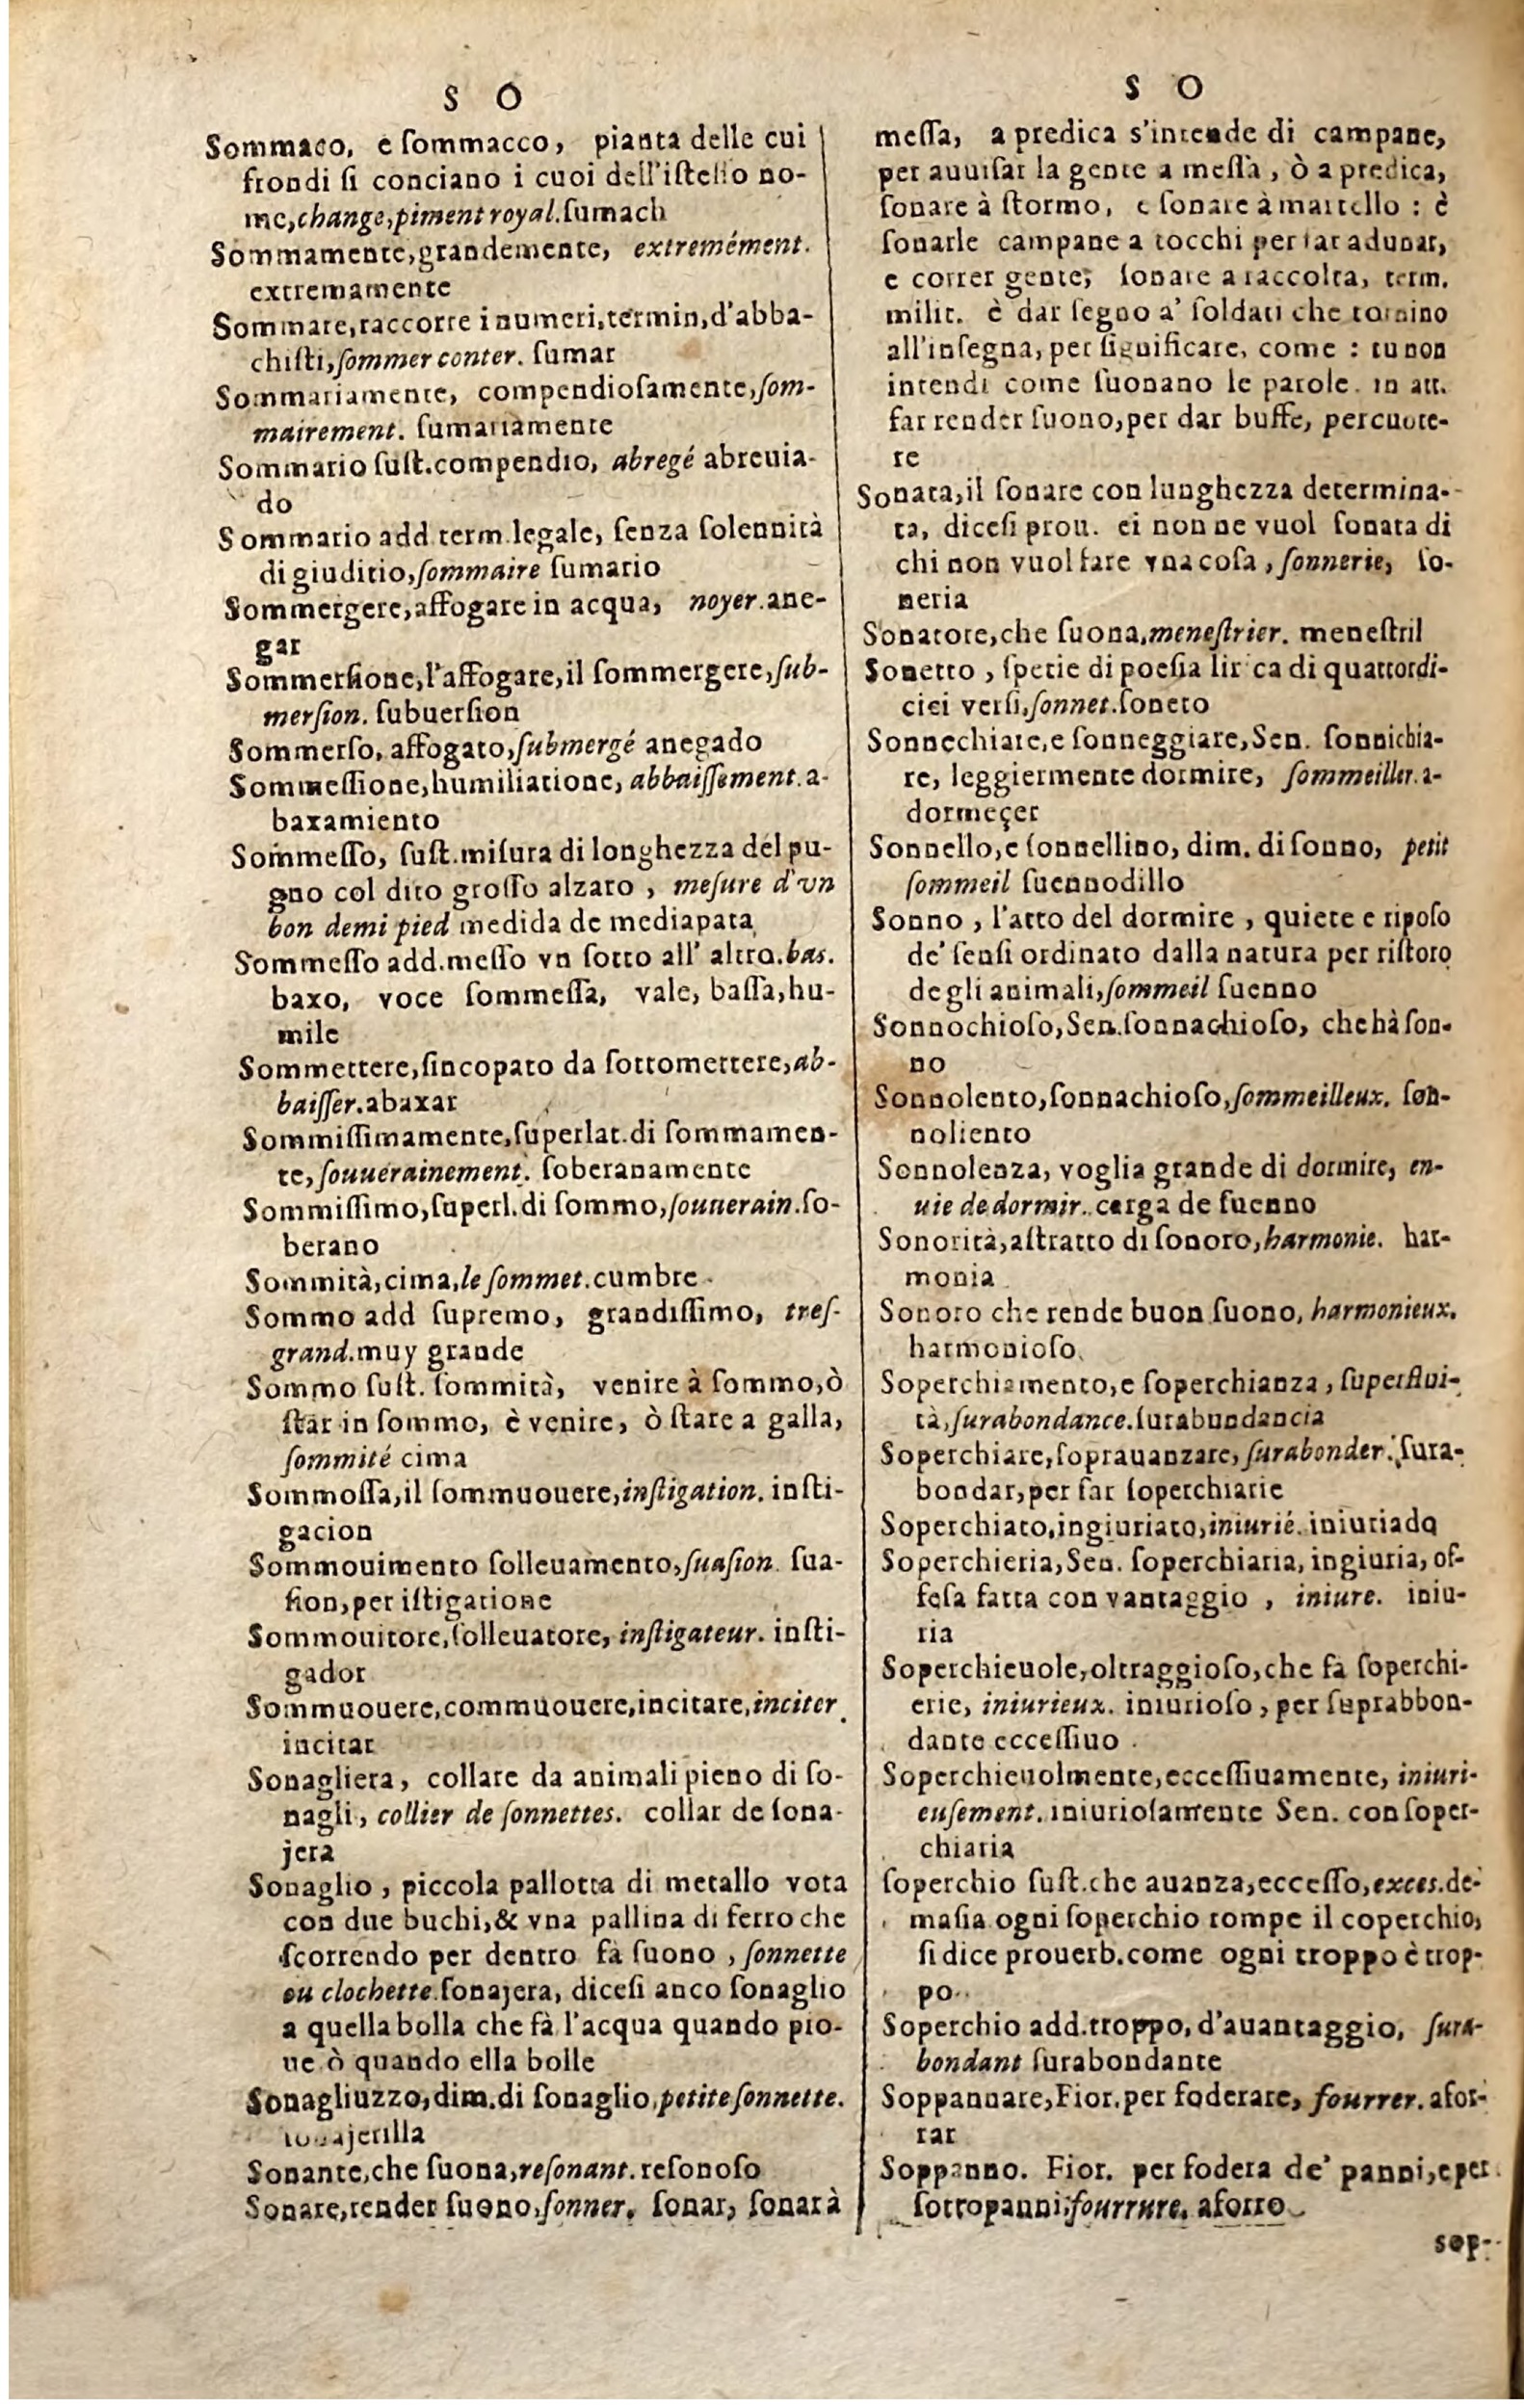 S O
Sommaco, e ſommacco, pianta delle cui
frondi ſi conciano i cuoi dell'iſteſſo no-
me, change, piment royal. ſumach
Sommamente, grandemente, extremément.
extremamente
Sommare, raccorre i numeri, termin, d'abba-
chiſti, ſommer conter. ſumar
Sommariamente, compendioſamente, ſom-
mairement. ſumariamente
Sommario ſuſt. compendio, abregé abreuia-
do
Sommario add term. legale, ſenza ſolennità
di giuditio, ſommaire ſumario
Sommergere, affogare in acqua, noyer. ane-
gar
Sommerſione, l'affogare, il ſommergere, ſub-
merſion. ſubuerſion
Sommerſo, affogato, ſubmergé anegado
Sommeſſione, humiliatione, abbaiſſement. a-
baxamiento
Sommeſſo, ſuſt. miſura di longhezza del pu-
gno col dito groſſo alzato, meſure d'vn
bon demi pied medida de mediapata
Sommeſſo add. meſſo vn ſotto all' altro. bas.
baxo, voce ſommeſſa, vale, baſſa, hu-
mile
Sommettere, ſincopato da ſottomettere, ab-
baiſſer. abaxar
Sommiſſimamente, ſuperlat. di ſommamen-
te, ſouuerainement. ſoberanamente
Sommiſſimo, ſuperl. di ſommo, ſouuerain. ſo-
berano
Sommità, cima, le ſommet. cumbre
Sommo add ſupremo, grandiſſimo, treſ-
grand. muy grande
Sommo ſuſt. ſommità, venire à ſommo, ò
ſtar in ſommo, è venire, ò ſtare a galla,
ſommité cima
Sommoſſa, il ſommuouere, inſtigation. inſti-
gacion
Sommouimento ſolleuamento, ſuaſion. ſua-
ſion, per iſtigatione
Sommouitore, ſolleuatore, inſtigateur. inſti-
gador
Sommuouere, commuouere, incitare, inciter.
incitar
Sonagliera, collare da animali pieno di ſo-
nagli, collier de ſonnettes. collar de ſona-
jera
Sonaglio, piccola pallotta di metallo vota
con due buchi, & vna pallina di ferro che
ſcorrendo per dentro fà ſuono, ſonnette
ou clochette. ſonajera, diceſi anco ſonaglio
a quella bolla che fà l'acqua quando pio-
ue ò quando ella bolle
Sonagliuzzo, dim. di ſonaglio, petite ſonnette.
ſonajerilla
Sonante, che ſuona, reſonant. reſonoſo
Sonare, render ſuono, ſonner. ſonar, ſonar à
S O
meſſa, a predica s'intende di campane,
per auuiſar la gente a meſſa, ò a predica,
ſonare à ſtormo, e ſonare à martello: è
ſonarle campane a tocchi per far adunar,
e correr gente; ſonare a raccolta, term.
milit. è dar ſegno a' ſoldati che tornino
all'inſegna, per ſignificare, come: tu non
intendi come ſuonano le parole. in att.
far render ſuono, per dar buffe, percuote-
re
Sonata, il ſonare con lunghezza determina-
ta, diceſi prou. ei non ne vuol ſonata di
chi non vuol fare vna coſa, ſonnerie, ſo-
neria
Sonatore, che ſuona, meneſtrier. meneſtril
Sonetto, ſpetie di poeſia lirica di quattordi-
cici verſi, ſonnet. ſoneto
Sonnechiare, e ſonneggiare, Sen. ſonnichia-
re, leggiermente dormire, ſommeiller. a-
dormeçer
Sonnello, e ſonnellino, dim. di ſonno, petit
ſommeil ſuennodillo
Sonno, l'atto del dormire, quiete e ripoſo
de' ſenſi ordinato dalla natura per riſtoro
degli animali, ſommeil ſuenno
Sonnochioſo, Sen. ſonnachioſo, che hà ſon-
no
Sonnolento, ſonnachioſo, ſommeilleux. ſon-
noliento
Sonnolenza, voglia grande di dormire, en-
uie de dormir. carga de ſuenno
Sonorità, aſtratto di ſonoro, harmonie. har-
monia
Sonoro che rende buon ſuono, harmonieux.
harmonioſo
Soperchiamento, e ſoperchianza, ſuperflui-
tà, ſurabondance. ſurabundancia
Soperchiare, ſoprauanzare, ſurabonder. ſura-
bondar, per far ſoperchiarie
Soperchiato, ingiuriato, iniurié. iniuriado
Soperchieria, Sen. ſoperchiaria, ingiuria, of-
feſa fatta con vantaggio, iniure. iniu-
ria
Soperchieuole, oltraggioſo, che fà ſoperchi-
erie, iniurieux. iniurioſo, per ſuprabbon-
dante ecceſſiuo.
Soperchieuolmente, ecceſſiuamente, iniuri-
euſement. iniurioſamente Sen. con ſoper-
chiaria
ſoperchio ſuſt. che auanza, ecceſſo, exces. de-
maſia ogni ſoperchio rompe il coperchio,
ſi dice prouerb. come ogni troppo è trop-
po
Soperchio add. troppo, d'auantaggio, ſura-
bondant ſurabondante
Soppannare, Fior. per foderare, fourrer. afor-
rar
Soppanno. Fior. per fodera de' panni, e per
ſottopanni; fourrure. aforro
sop-